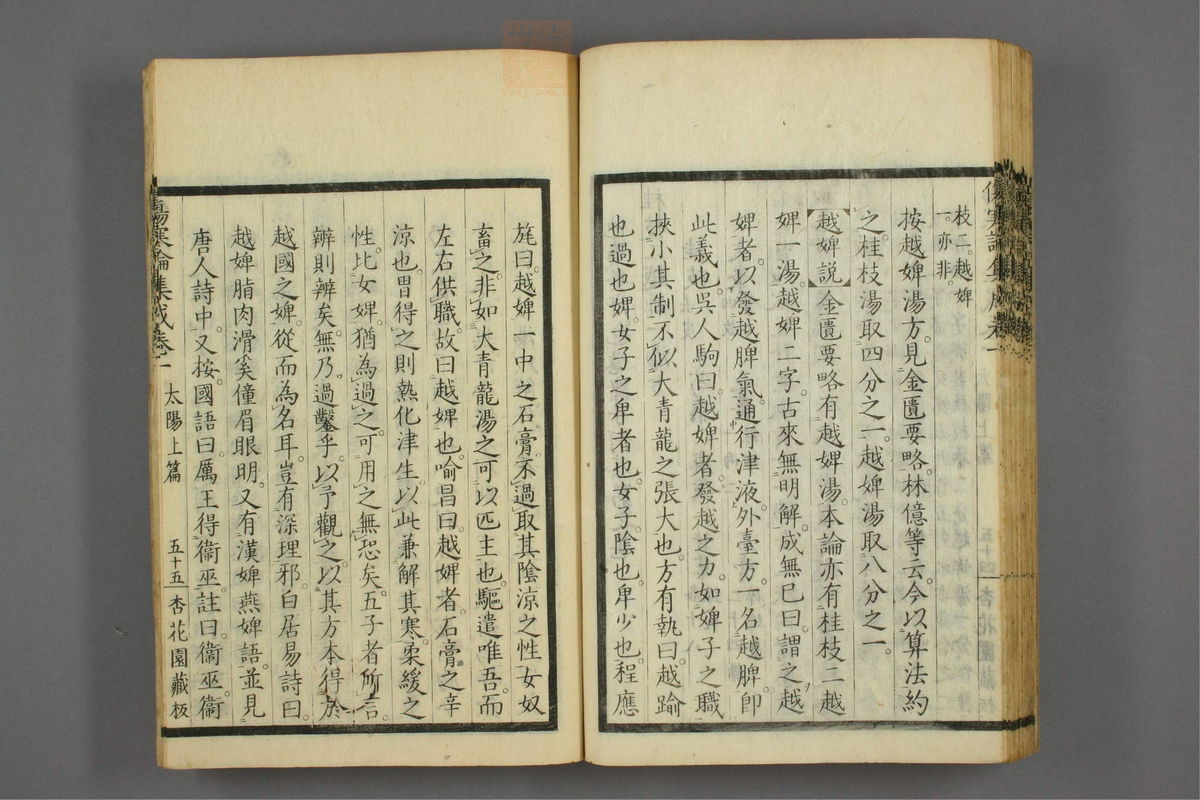 傷寒論集成卷一
枝二越婢
一亦非。
按越婢湯方。見金匱要略。林億等云。今以算法約
之。桂枝湯取四分之一。越婢湯取八分之一。
越婢說 金匱要略有越婢湯。本論亦有桂枝二越
婢一湯。越婢二字。古來無明解。成無已曰。謂之越
婢者。以發越脾氣。通行津液。外臺方。一名越脾。卽
此義也。吳人駒曰。越婢者。發越之力。如婢子之職。
挾小其制。不似大青龍之張大也。方有執曰。越踰
也。過也。婢女子之卑者也。女子。陰也。卑少也。程應
旄曰。越婢一中之石膏。不過取其陰涼之性。女奴
畜之。非如大青龍湯之可以匹主也。驅遣唯吾。而
左右供職。故曰越婢也。喻昌曰。越婢者。石膏之辛
涼也。胃得之則熱化津生。以此兼解其寒。柔緩之
性。比女婢猶為過之。可用之無恐矣。五子者所言。
辨則辨矣。無乃過鑿乎。以予觀之。以其方本得於
越國之婢。從而為名耳。豈有深理邪。白居易詩曰。
越婢脂肉滑。奚僮眉眼明。又有漢婢燕婢語。並見
唐人詩中。又按。國語曰。厲王得衞巫。註曰。衞巫。衞
傷寒論集成卷一 太陽上篇 五十五 杏花園藏板